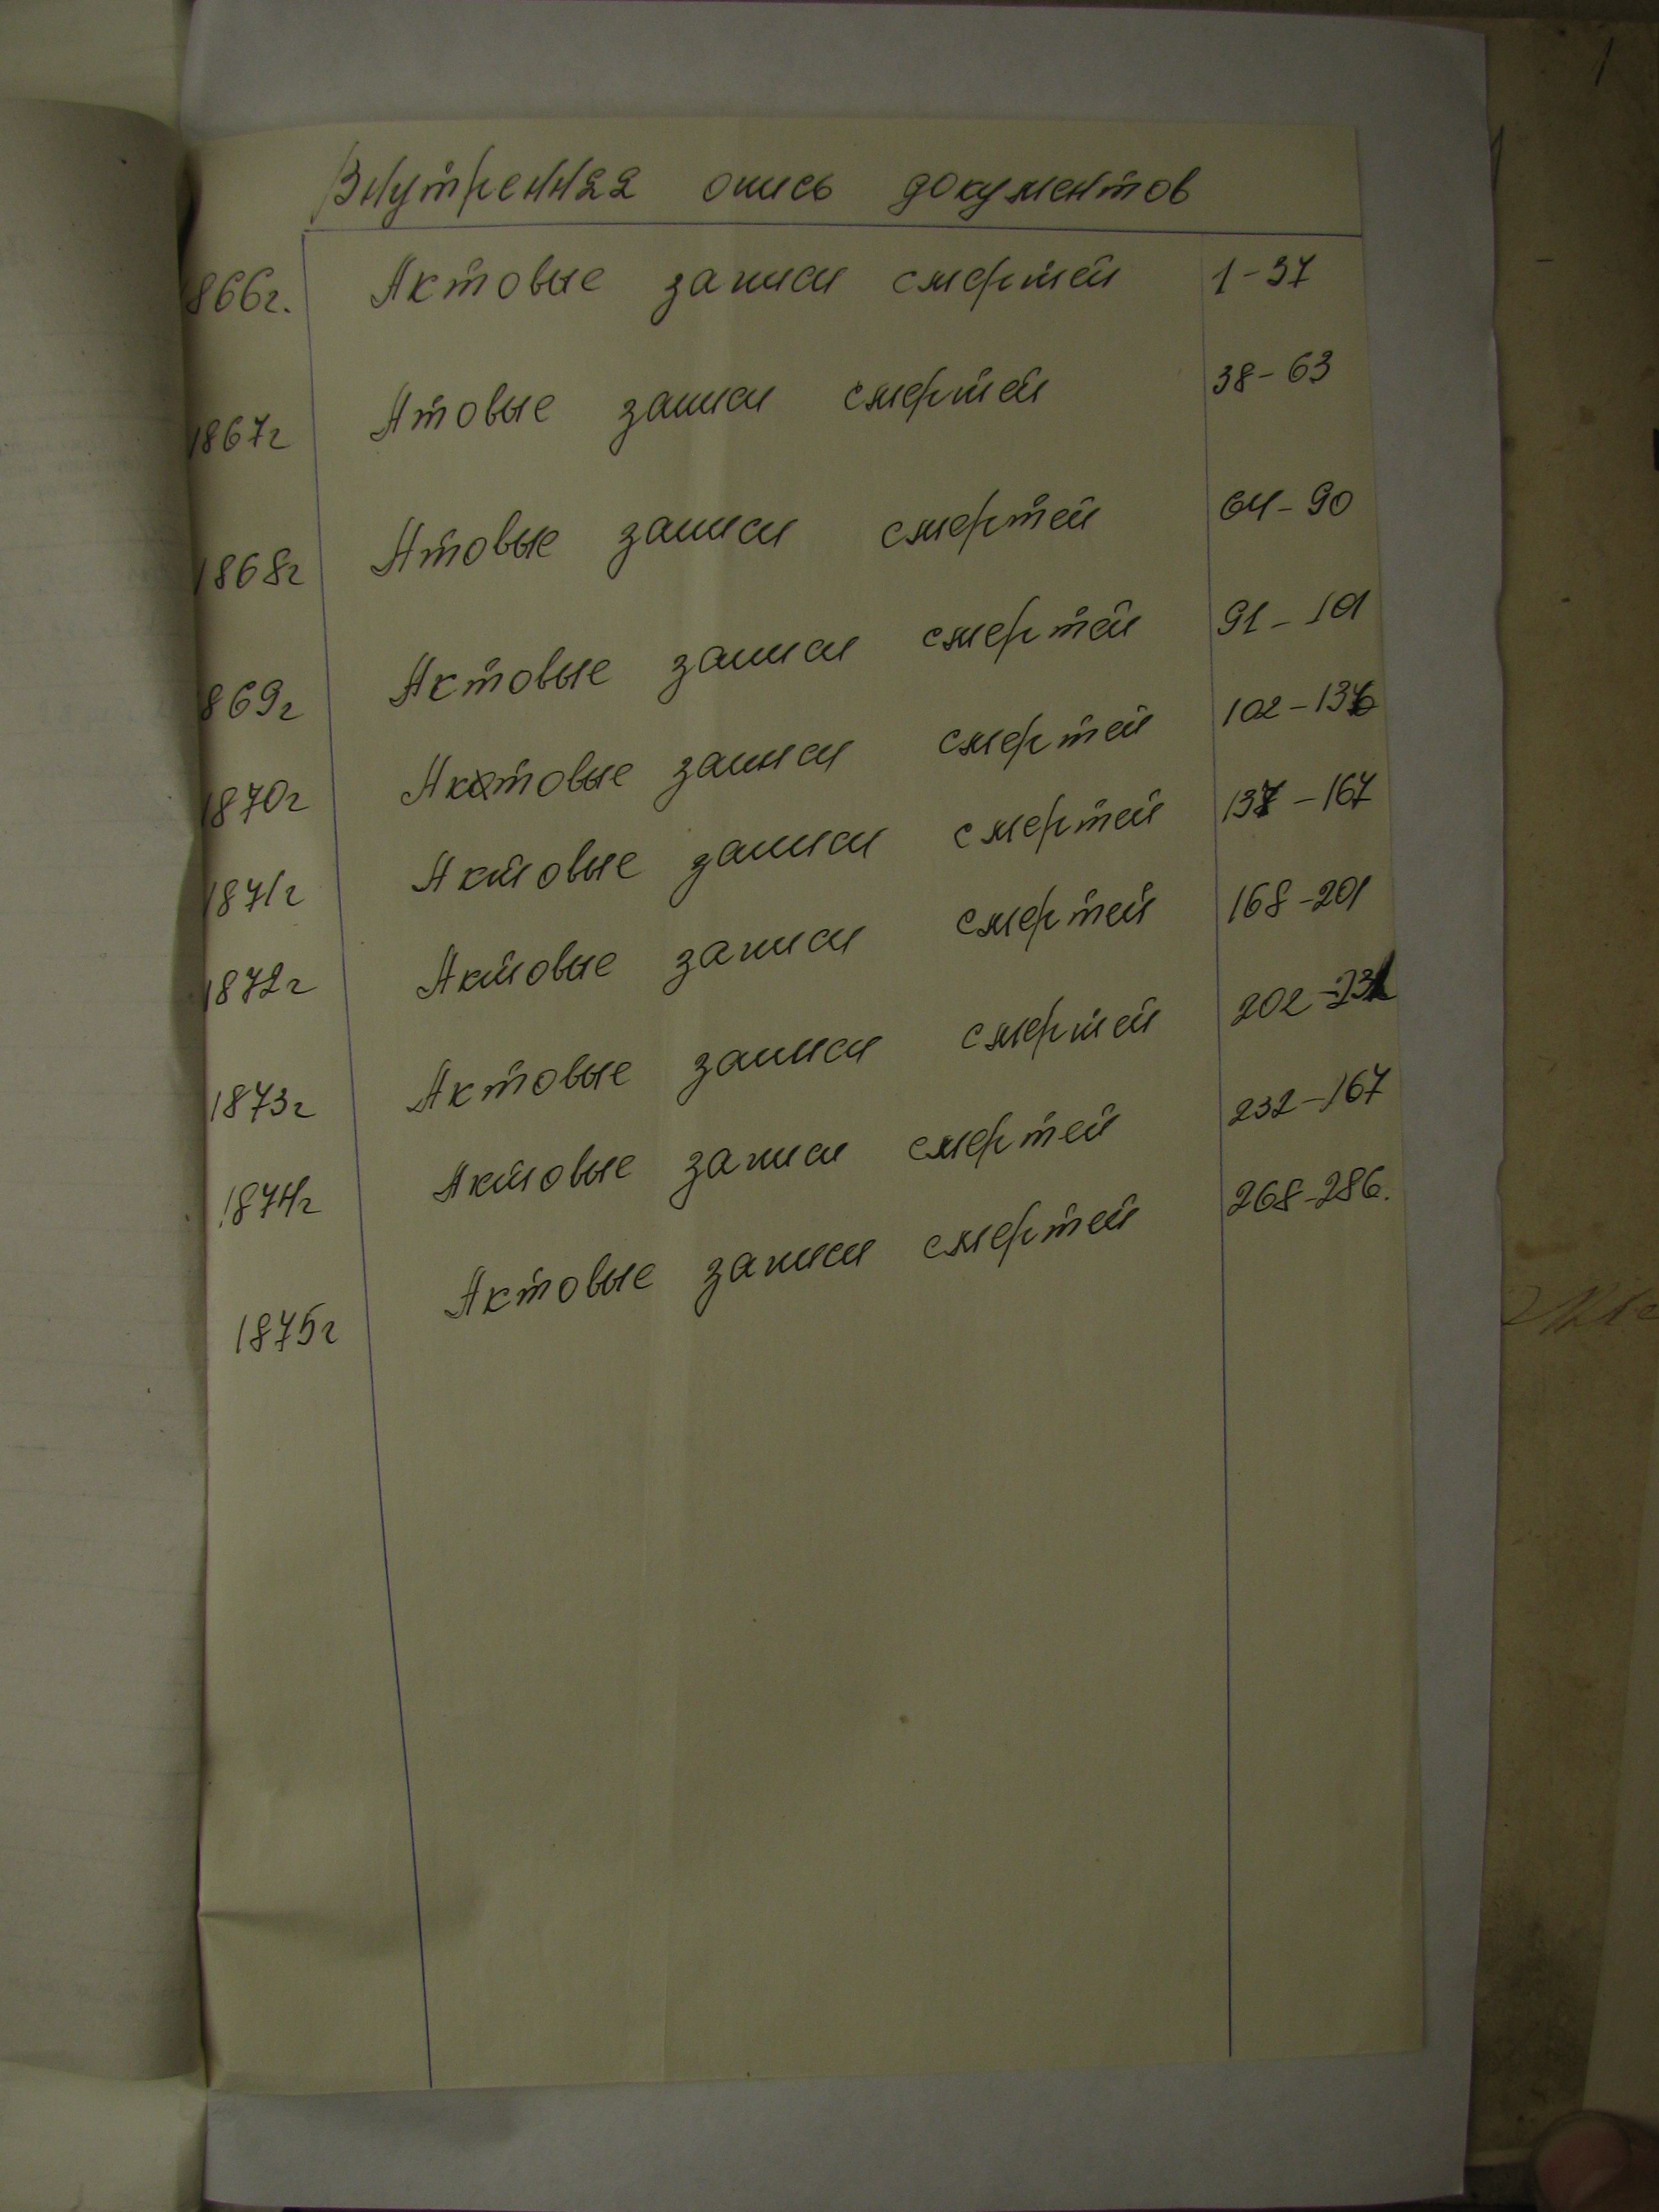 Внутренняя опись документов
866г. Актовые записи смертей 1-37
1867г Атовые записи смертей 38-63
1868г Атовые записи смертей 64-90
869г Актовые записи смертей 91-101
1870г Актовые записи смертей 102-136
1871г Актовые записи смертей 137-167
1872г Актовые записи смертей 168-201
1873г Актовые записи смертей 202-231
1874г Актовые записи смертей 232-167
1875г Актовые записи смертей 268-286.